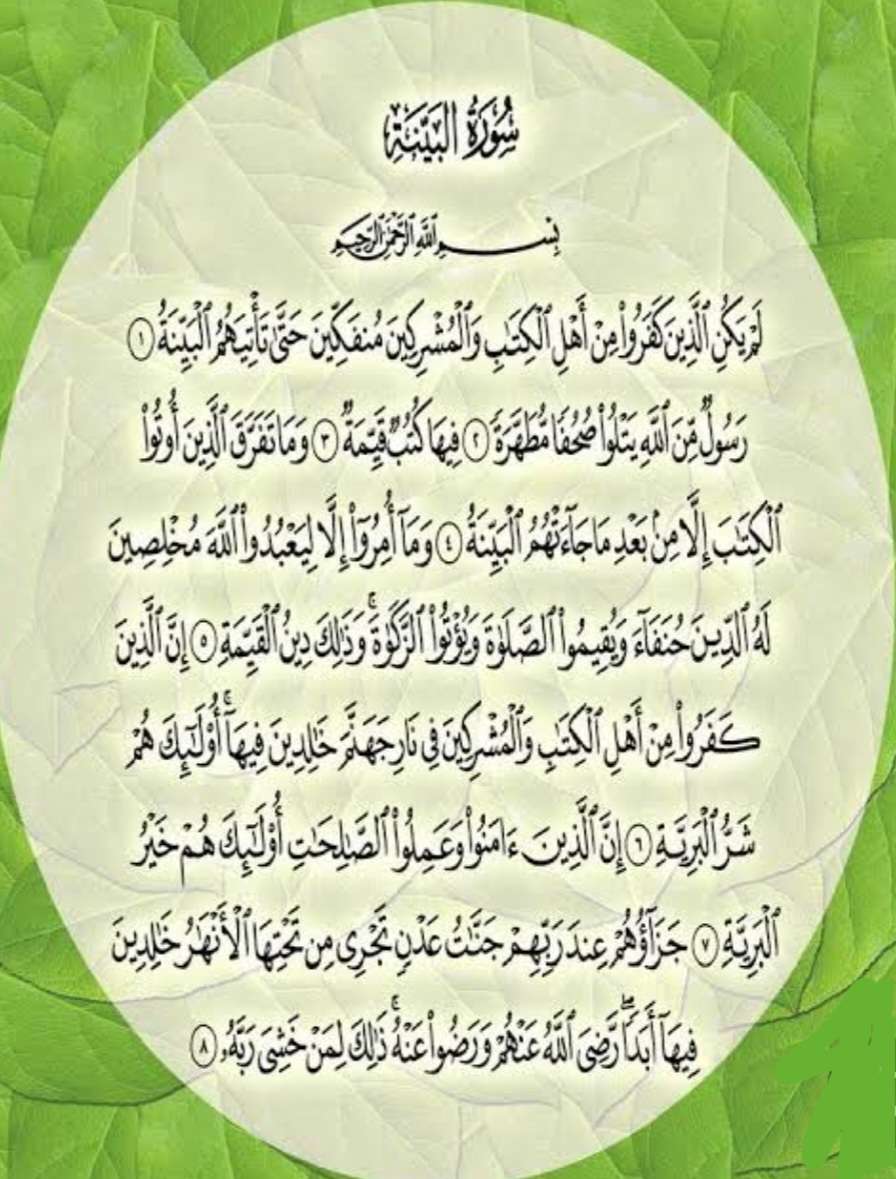 سُورَةُ الْبَيِّنَةِ
بِسْمِ ٱللَّهِ ٱلرَّحْمَٰنِ ٱلرَّحِيمِ
لَمْ يَكُنِ ٱلَّذِينَ كَفَرُوا۟ مِنْ أَهْلِ ٱلْكِتَٰبِ وَٱلْمُشْرِكِينَ مُنفَكِّينَ حَتَّىٰ تَأْتِيَهُمُ ٱلْبَيِّنَةُ ١
رَسُولٌ مِّنَ ٱللَّهِ يَتْلُوا۟ صُحُفًا مُّطَهَّرَةً ٢ فِيهَا كُتُبٌ قَيِّمَةٌ ٣ وَمَا تَفَرَّقَ ٱلَّذِينَ أُوتُوا۟
ٱلْكِتَٰبَ إِلَّا مِنۢ بَعْدِ مَا جَآءَتْهُمُ ٱلْبَيِّنَةُ ٤ وَمَآ أُمِرُوٓا۟ إِلَّا لِيَعْبُدُوا۟ ٱللَّهَ مُخْلِصِينَ
لَهُ ٱلدِّينَ حُنَفَآءَ وَيُقِيمُوا۟ ٱلصَّلَوٰةَ وَيُؤْتُوا۟ ٱلزَّكَوٰةَ ۚ وَذَٰلِكَ دِينُ ٱلْقَيِّمَةِ ٥ إِنَّ ٱلَّذِينَ
كَفَرُوا۟ مِنْ أَهْلِ ٱلْكِتَٰبِ وَٱلْمُشْرِكِينَ فِى نَارِ جَهَنَّمَ خَٰلِدِينَ فِيهَآ ۚ أُو۟لَٰٓئِكَ هُمْ
شَرُّ ٱلْبَرِيَّةِ ٦ إِنَّ ٱلَّذِينَ ءَامَنُوا۟ وَعَمِلُوا۟ ٱلصَّٰلِحَٰتِ أُو۟لَٰٓئِكَ هُمْ خَيْرُ
ٱلْبَرِيَّةِ ٧ جَزَآؤُهُمْ عِندَ رَبِّهِمْ جَنَّٰتُ عَدْنٍ تَجْرِى مِن تَحْتِهَا ٱلْأَنْهَٰرُ خَٰلِدِينَ
فِيهَآ أَبَدًا ۖ رَّضِىَ ٱللَّهُ عَنْهُمْ وَرَضُوا۟ عَنْهُ ۚ ذَٰلِكَ لِمَنْ خَشِىَ رَبَّهُۥ ٨